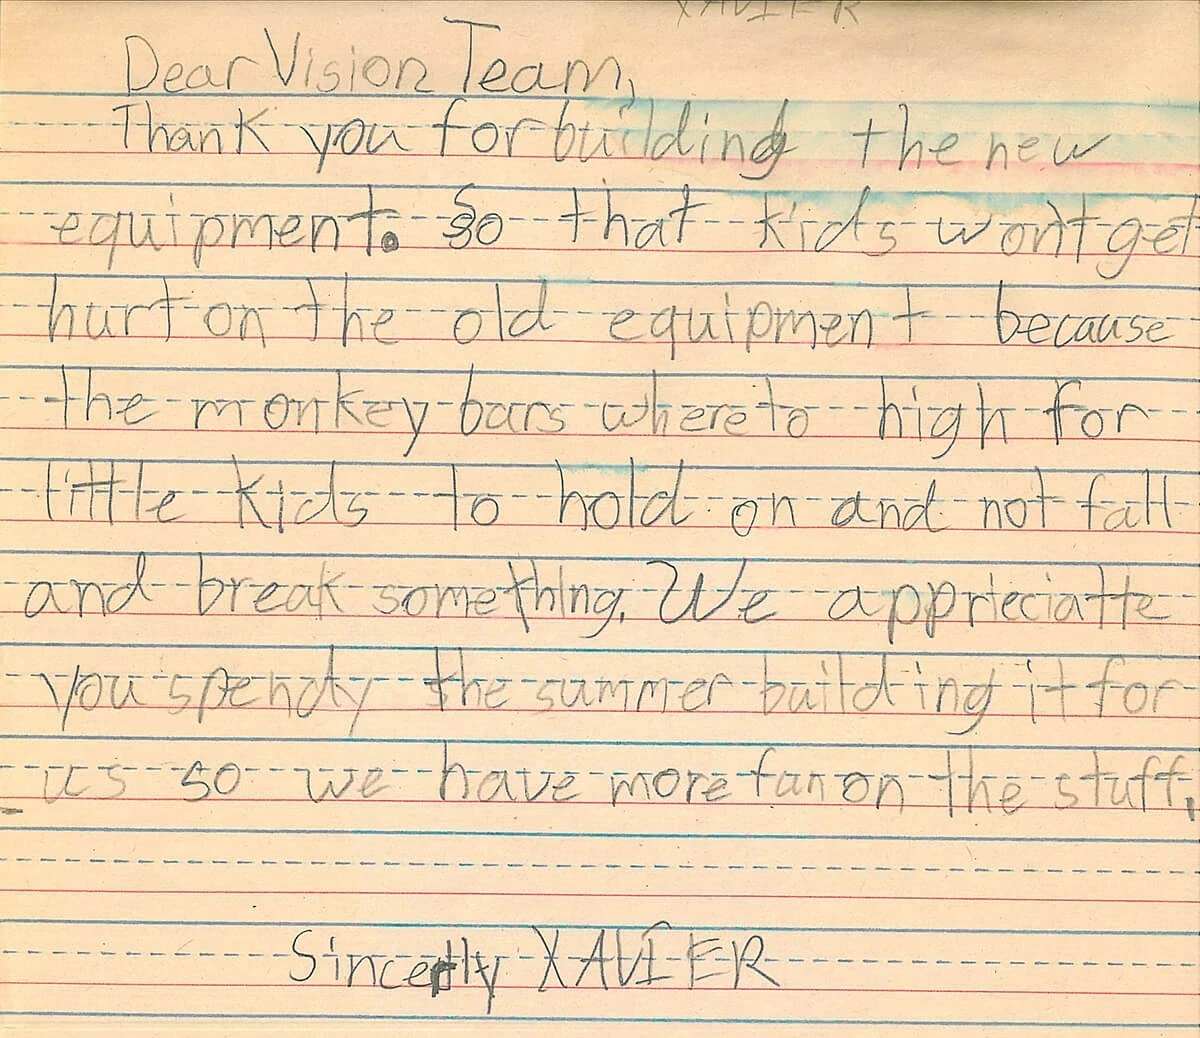 XAVIER
Dear Vision Team,
Thank you for building the new
equipment. So that kids wont get
hurt on the old equipment because
the monkey bars where to high for
little kids to hold on and not fall
and break something. We apprieciatte
you spendy the summer building it for
us so we have more fun on the stuff.
Sincerly XAVIER